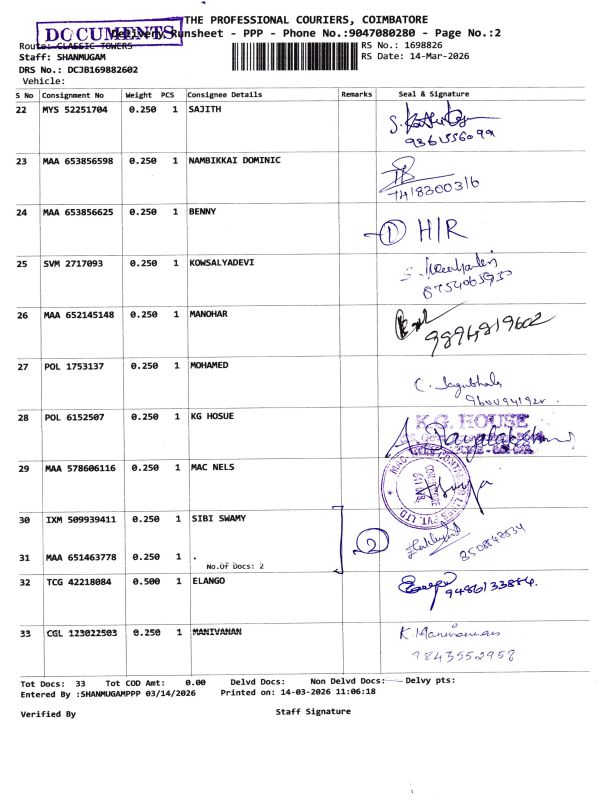 THE PROFESSIONAL COURIERS, COIMBATORE
DOCUMENTS
Delivery Runsheet - PPP - Phone No.:9047080280 - Page No.:2
Route: CLASSIC TOWERS
RS No.: 1698826
Staff: SHANMUGAM
RS Date: 14-Mar-2026
DRS No.: DCJB169882602
Vehicle:
S No Consignment No Weight PCS Consignee Details Remarks Seal & Signature
22 MYS 52251704 0.250 1 SAJITH
9361556099
23 MAA 653856598 0.250 1 NAMBIKKAI DOMINIC
7418300316
24 MAA 653856625 0.250 1 BENNY
1 H/R
25 SVM 2717093 0.250 1 KOWSALYADEVI
26 MAA 652145148 0.250 1 MANOHAR
9894819602
27 POL 1753137 0.250 1 MOHAMED
28 POL 6152507 0.250 1 KG HOSUE
K.G. HOUSE
29 MAA 578606116 0.250 1 MAC NELS
30 IXM 509939411 0.250 1 SIBI SWAMY
2
31 MAA 651463778 0.250 1 .
No.Of Docs: 2
32 TCG 42218084 0.500 1 ELANGO
9486133884.
33 CGL 123022503 0.250 1 MANIVANAN
K. Manivannan
9843552958
Tot Docs: 33 Tot COD Amt: 0.00 Delvd Docs: Non Delvd Docs: Delvy pts:
Entered By :SHANMUGAMPPP 03/14/2026 Printed on: 14-03-2026 11:06:18
Verified By Staff Signature